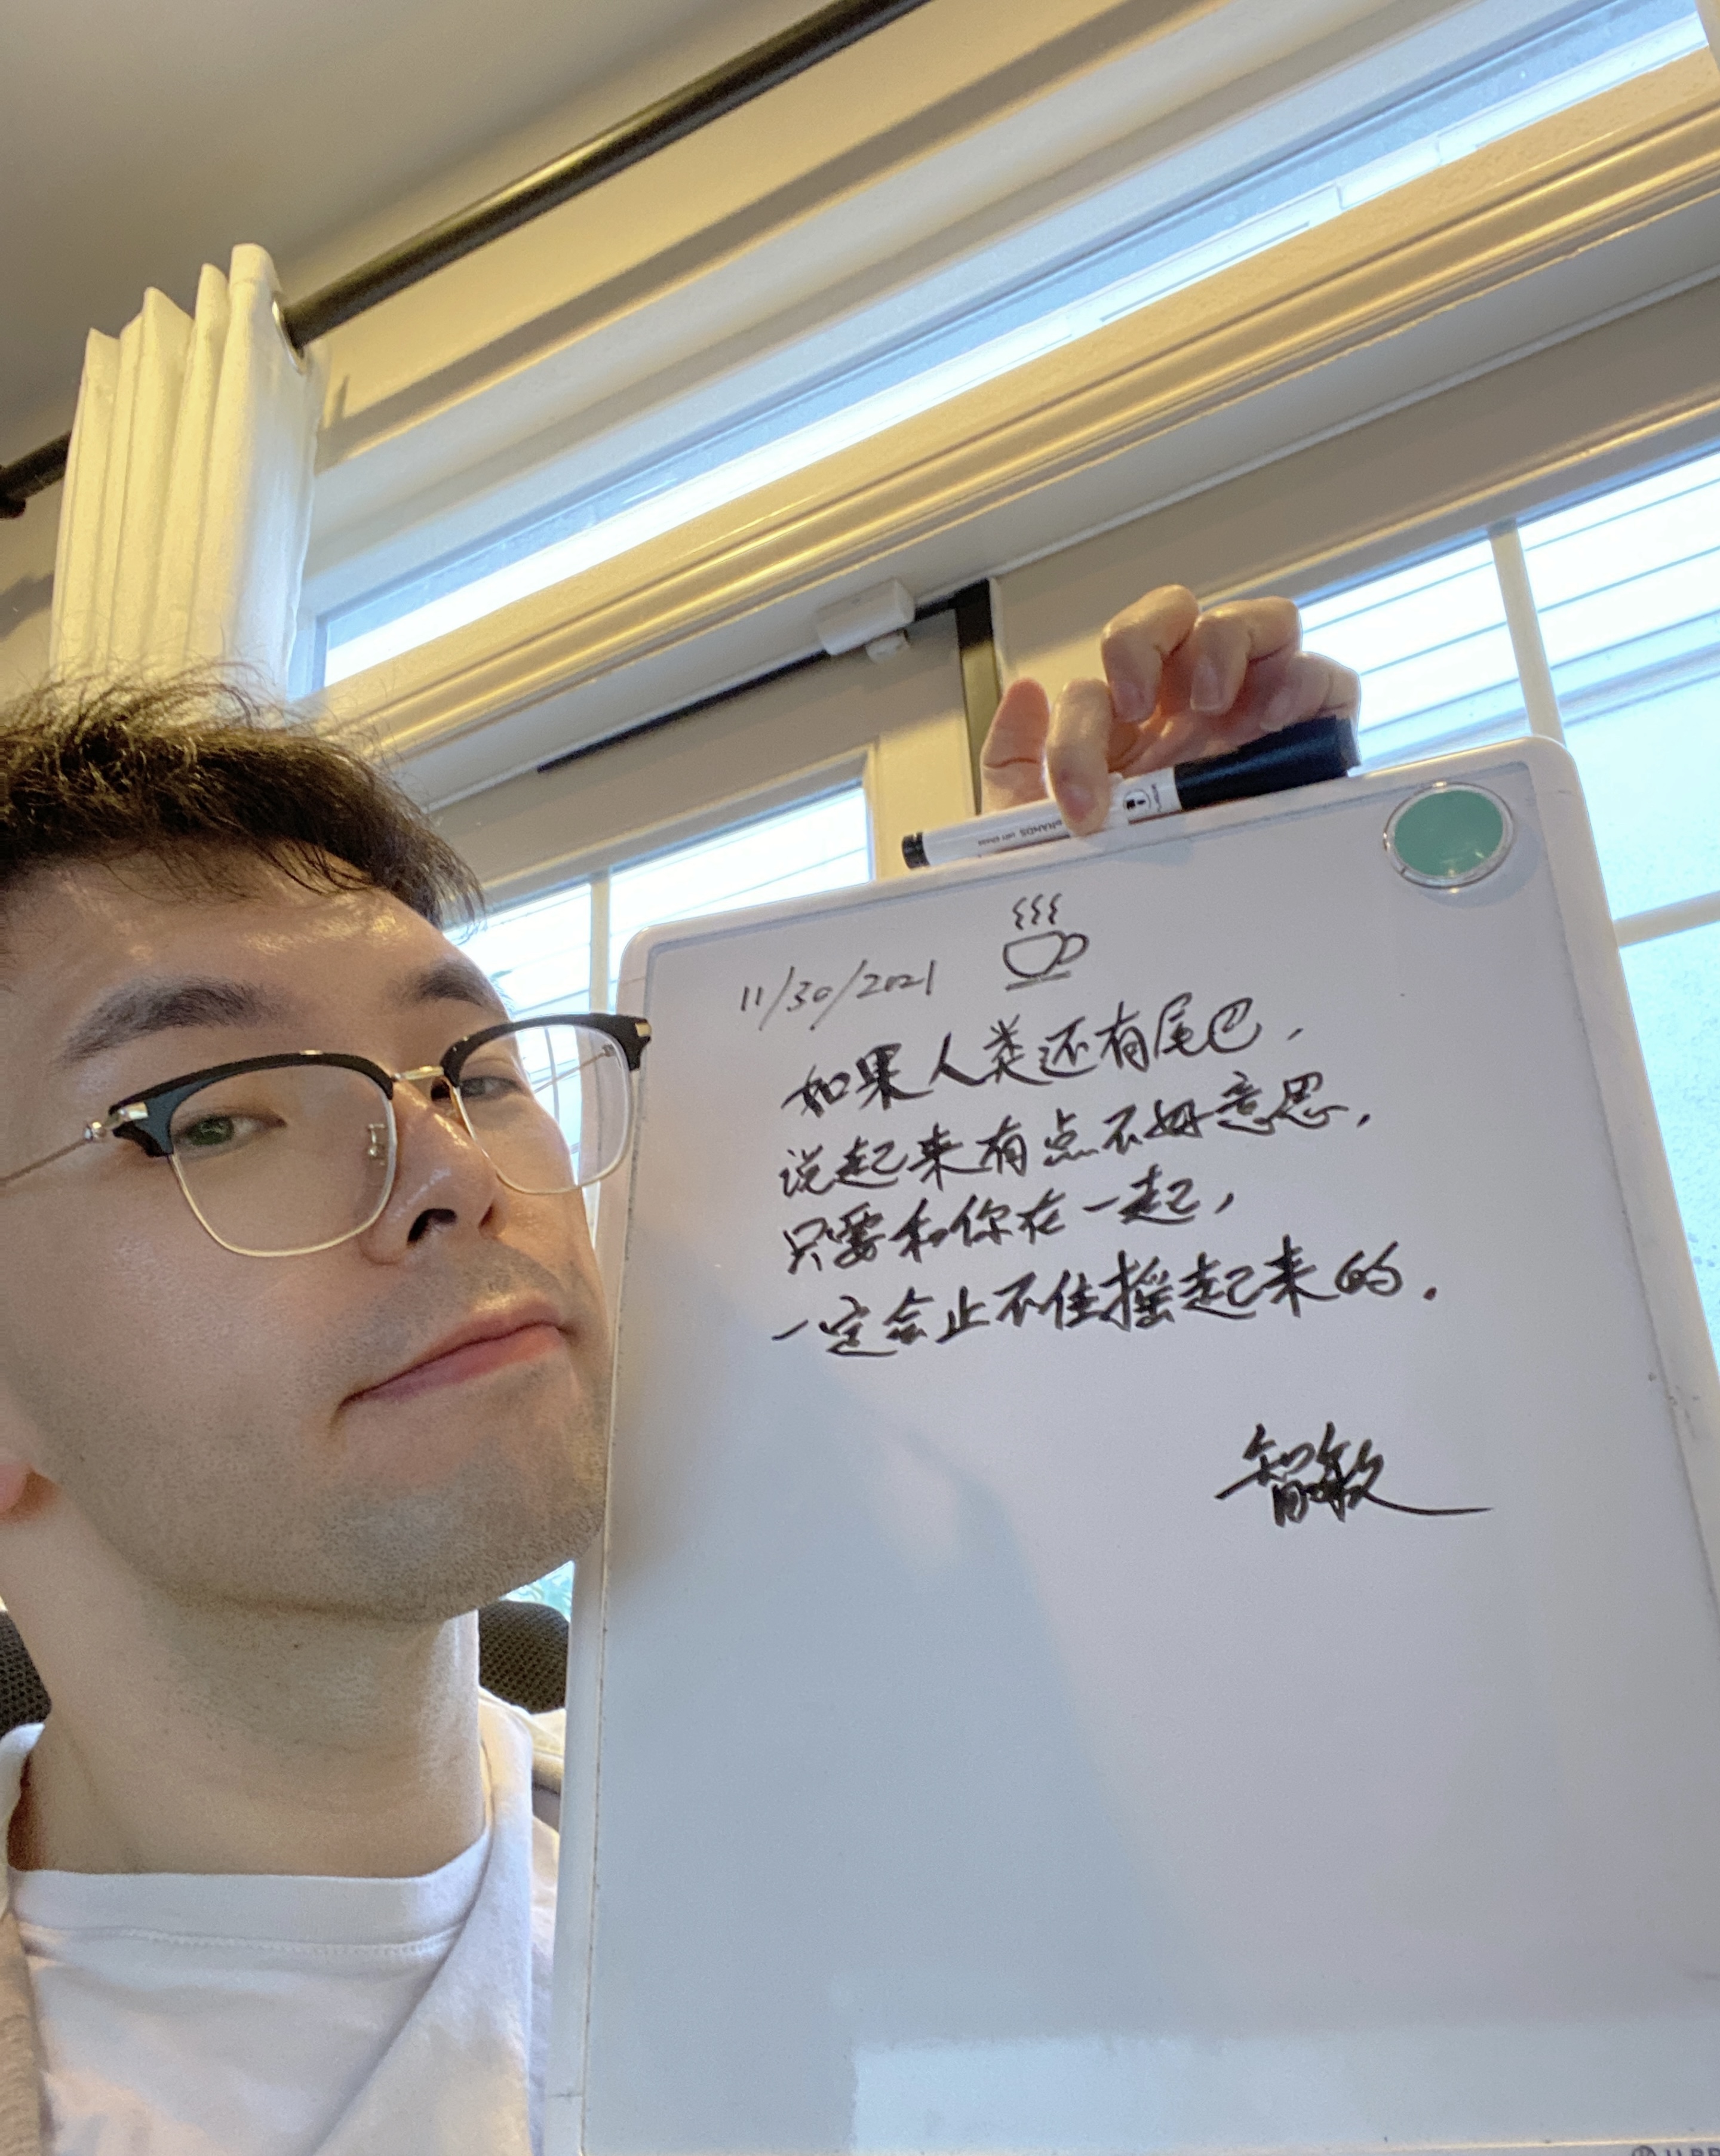 11/30/2021
如果人类还有尾巴，
说起来有点不好意思，
只要和你在一起，
一定会止不住摇起来的.
智敏